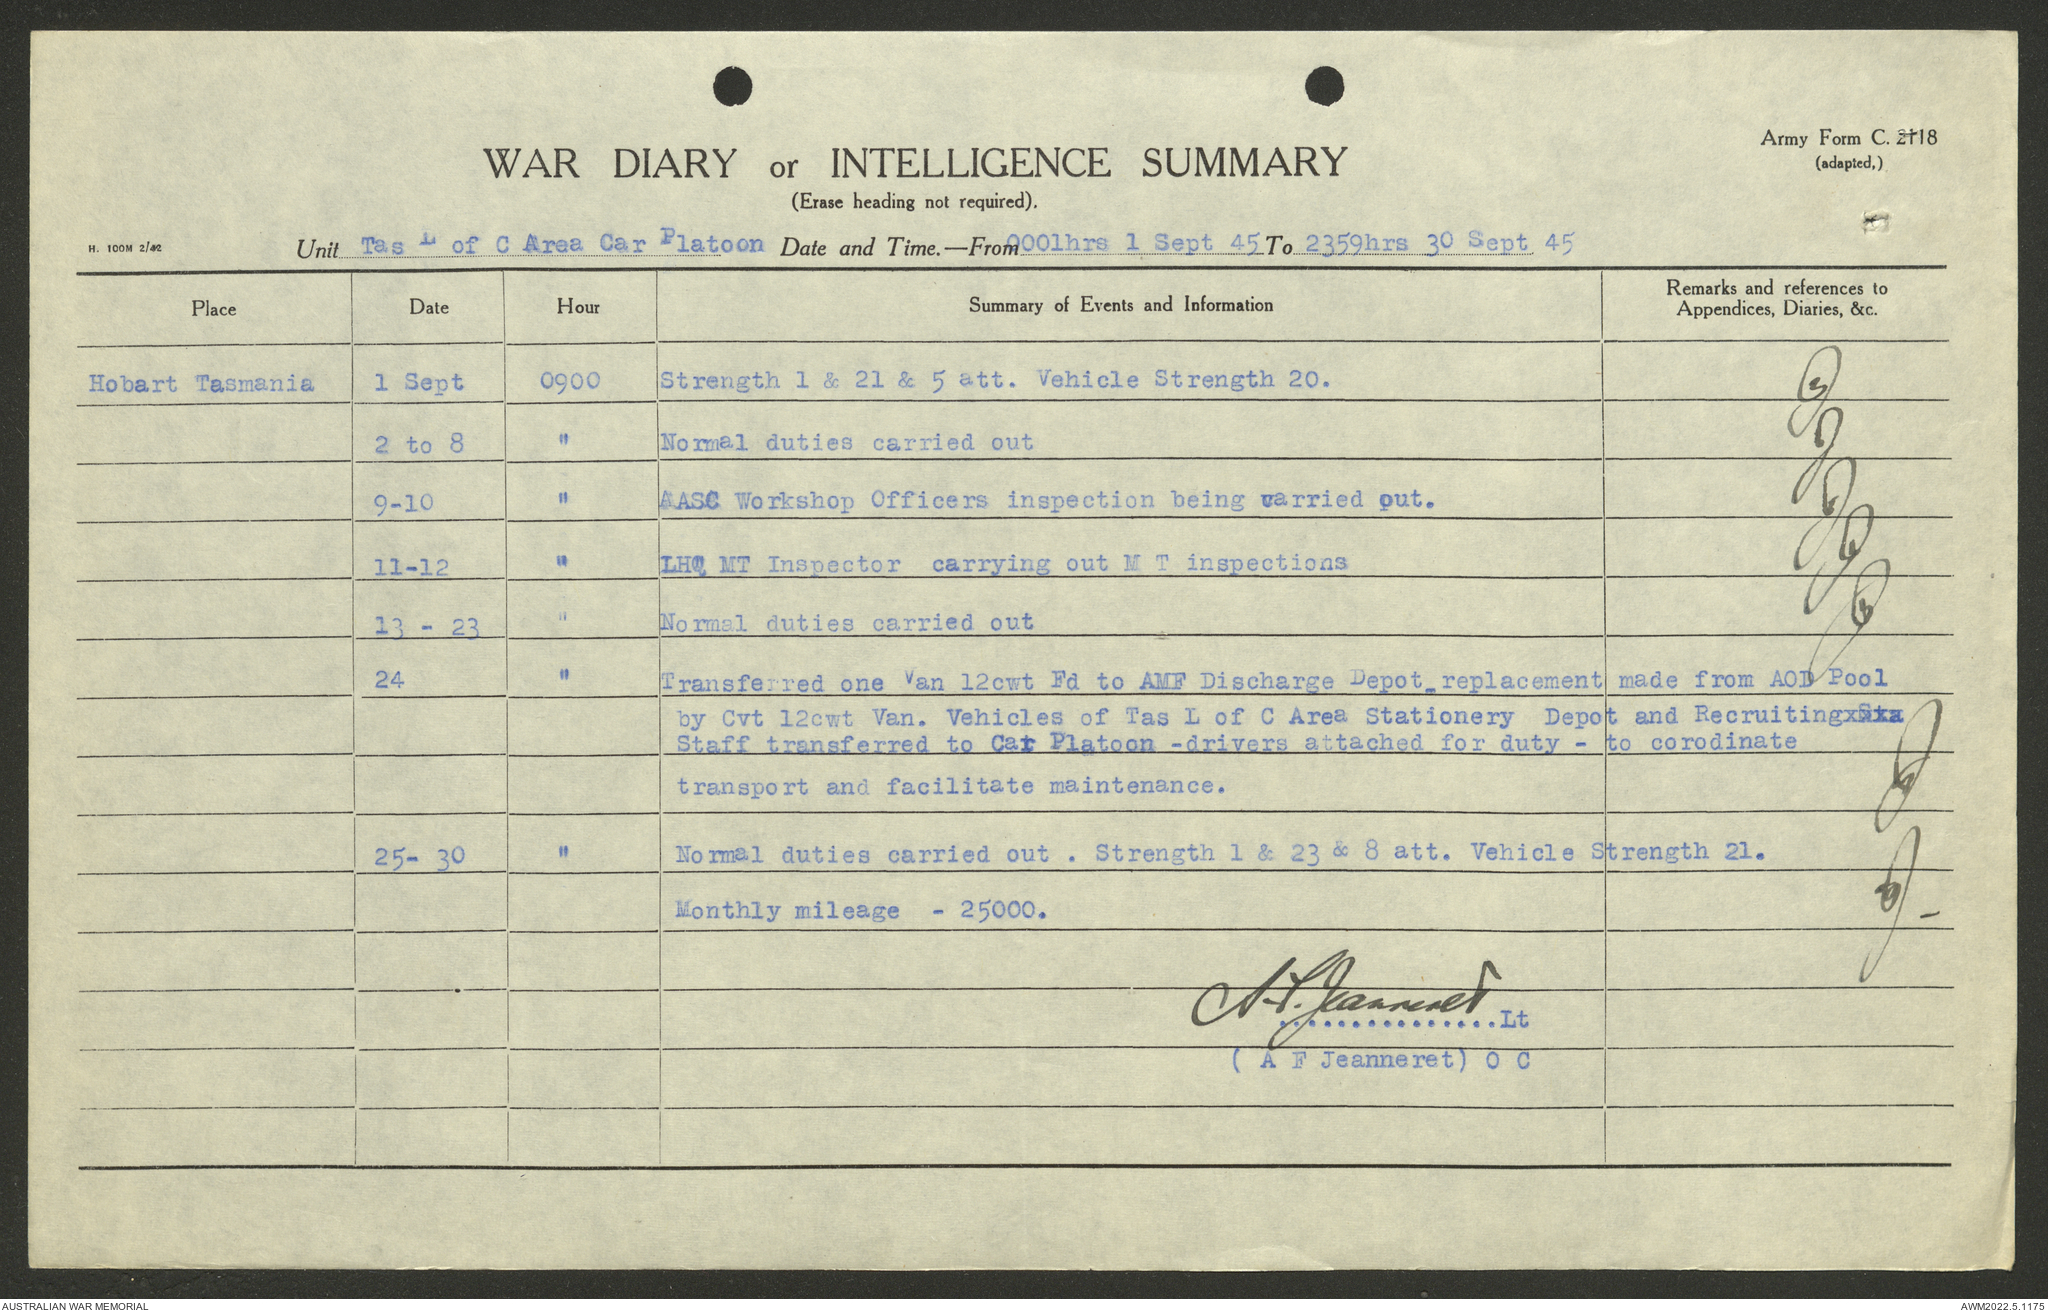 WAR DIARY or INTELLIGENCE SUMMARY
(Erase heading not required).
Army Form C. 2118
(adapted,)
H. 100M 2/42
Unit Tas L of C Area Car Platoon Date and Time.—From 0001hrs 1 Sept 45 To 2359hrs 30 Sept 45
Place Date Hour Summary of Events and Information Remarks and references to
Appendices, Diaries, &c.
Hobart Tasmania 1 Sept 0900 Strength 1 & 21 & 5 att. Vehicle Strength 20.
2 to 8 " Normal duties carried out
9-10 " AASC Workshop Officers inspection being carried out.
11-12 " LHQ MT Inspector carrying out M T inspections
13 - 23 " Normal duties carried out
24 " Transferred one Van 12cwt Fd to AMF Discharge Depot_replacement made from AOD Pool
by Cvt 12cwt Van. Vehicles of Tas L of C Area Stationery Depot and Recruiting
Staff transferred to Car Platoon -drivers attached for duty - to corodinate
transport and facilitate maintenance.
25- 30 " Normal duties carried out . Strength 1 & 23 & 8 att. Vehicle Strength 21.
Monthly mileage - 25000.
A.F. Jeanneret
................Lt
( A F Jeanneret) O C
AUSTRALIAN WAR MEMORIAL
AWM2022.5.1175